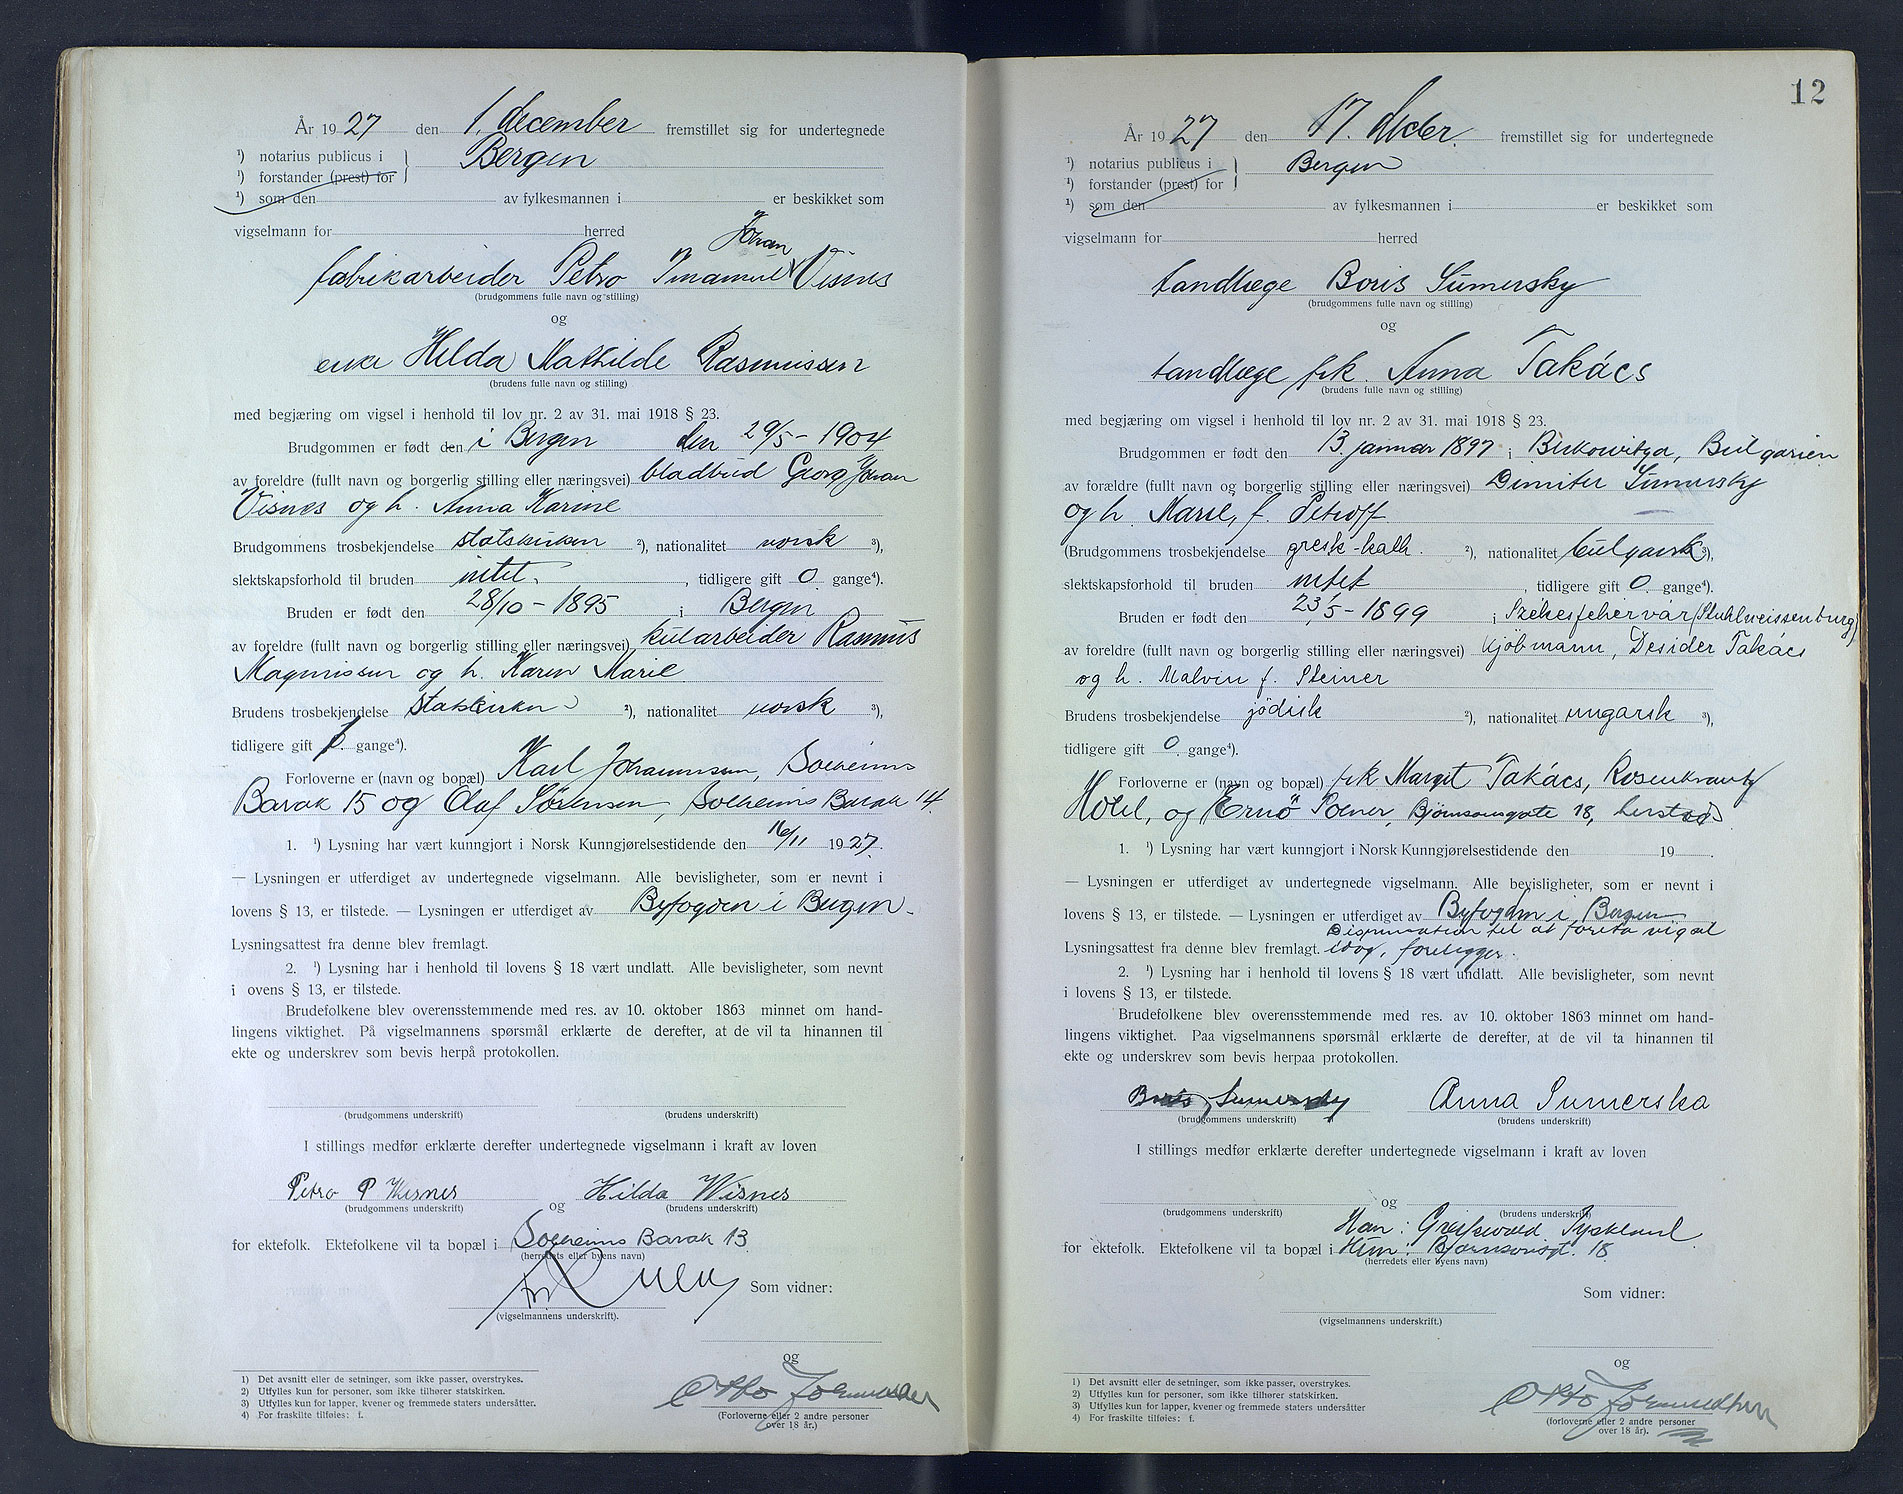 År 1927 den 1. december fremstillet sig for undertegnede
¹) notarius publicus i } Bergen
¹) forstander (prest) for
¹) som den av fylkesmannen i er beskikket som
vigselmann for herred
Johan
fabrikarbeider Petro Imanuel Visnes
(brudgommens fulle navn og stilling)
og
enke Hilda Mathilde Rasmussen
(brudens fulle navn og stilling)
med begjæring om vigsel i henhold til lov nr. 2 av 31. mai 1918 § 23.
Brudgommen er født den i Bergen den 29/5 - 1904
av foreldre (fullt navn og borgerlig stilling eller næringsvei) bladbud Georg Johan
Visnes og h. Anna Karine
Brudgommens trosbekjendelse statskirken ²), nationalitet norsk ³),
slektskapsforhold til bruden intet, tidligere gift 0 gange⁴).
Bruden er født den 28/10 - 1895 i Bergen
av foreldre (fullt navn og borgerlig stilling eller næringsvei) kularbeider Rasmus
Magnussen og h. Karen Marie
Brudens trosbekjendelse statskirken ²), nationalitet norsk ³),
tidligere gift 1 gange⁴).
Forloverne er (navn og bopæl) Karl Johannesen, Solheims
Barak 15 og Olaf Sørensen, Solheims Barak 14.
1. ¹) Lysning har vært kunngjort i Norsk Kunngjørelsestidende den 16/11 1927.
— Lysningen er utferdiget av undertegnede vigselmann. Alle bevisligheter, som er nevnt i
lovens § 13, er tilstede. — Lysningen er utferdiget av Byfogden i Bergen.
Lysningsattest fra denne blev fremlagt.
2. ¹) Lysning har i henhold til lovens § 18 vært undlatt. Alle bevisligheter, som nevnt
i ovens § 13, er tilstede.
Brudefolkene blev overensstemmende med res. av 10. oktober 1863 minnet om hand-
lingens viktighet. På vigselmannens spørsmål erklærte de derefter, at de vil ta hinannen til
ekte og underskrev som bevis herpå protokollen.
(brudgommens underskrift) (brudens underskrift)
I stillings medfør erklærte derefter undertegnede vigselmann i kraft av loven
Petro P Wisnes og Hilda Wisnes
(brudgommens underskrift) (brudens underskrift)
for ektefolk. Ektefolkene vil ta bopæl i Solheims Barak 13
(herredets eller byens navn)
Som vidner:
(vigselmannens underskrift).
og
Otto
(Forloverne eller 2 andre personer
over 18 år.)
1) Det avsnitt eller de setninger, som ikke passer, overstrykes.
2) Utfylles kun for personer, som ikke tilhører statskirken.
3) Utfylles kun for lapper, kvener og fremmede staters undersåtter.
4) For fraskilte tilføies: f.
12
År 1927 den 17. decbr. fremstillet sig for undertegnede
¹) notarius publicus i } Bergen
¹) forstander (prest) for
¹) som den av fylkesmannen i er beskikket som
vigselmann for herred
tandlæge Boris Sumersky
(brudgommens fulle navn og stilling)
og
tandlæge frk. Anna Takács
(brudens fulle navn og stilling)
med begjæring om vigsel i henhold til lov nr. 2 av 31. mai 1918 § 23.
Brudgommen er født den 13. januar 1897 i Berkowitza, Bulgarien
av forældre (fullt navn og borgerlig stilling eller næringsvei) Dimiter Sumersky
og h. Marie, f. Petroff
(Brudgommens trosbekjendelse gresk-kath. ²), nationalitet bulgarsk ³),
slektskapsforhold til bruden intet, tidligere gift 0 gange⁴).
Bruden er født den 23/5 - 1899 i Szekesfehervár (Stuhlweissenburg)
av forældre (fullt navn og borgerlig stilling eller næringsvei) kjöbmann, Desider Takács
og h. Malvin f. Steiner
Brudens trosbekjendelse jödisk ²), nationalitet ungarsk ³),
tidligere gift 0 gange⁴).
Forloverne er (navn og bopæl) frk Margit Takács, Rosenkrantz
Hotel, og Ernö Polner, Bjørnsonsgate 18, hersteds
1. ¹) Lysning har vært kunngjort i Norsk Kunngjørelsestidende den 19 .
— Lysningen er utferdiget av undertegnede vigselmann. Alle bevisligheter, som er nevnt i
lovens § 13, er tilstede. — Lysningen er utferdiget av Byfogden i Bergen
Dispensation til at foreta vigsel
Lysningsattest fra denne blev fremlagt. idag, foreligger.
2. ¹) Lysning har i henhold til lovens § 18 vært undlatt. Alle bevisligheter, som nevnt
i lovens § 13, er tilstede.
Brudefolkene blev overensstemmende med res. av 10. oktober 1863 minnet om hand-
lingens viktighet. Paa vigselmannens spørsmål erklærte de derefter, at de vil ta hinannen til
ekte og underskrev som bevis herpaa protokollen.
Boris Sumersky Anna Sumerska
(brudgommens underskrift) (brudens underskrift)
I stillings medfør erklærte derefter undertegnede vigselmann i kraft av loven
og
(brudgommens underskrift) (brudens underskrift)
Han: Greifswald Tyskland.
for ektefolk. Ektefolkene vil ta bopæl i Hun: Bjørnsonsgt. 18
(herredets eller byens navn)
Som vidner:
(vigselmannens underskrift.)
og
Otto
(forloverne eller 2 andre personer
over 18 år).
1) Det avsnitt eller de setninger, som ikke passer, overstrykes.
2) Utfylles kun for personer, som ikke tilhører statskirken.
3) Utfylles kun for lapper, kvener og fremmede staters undersåtter
4) For fraskilte tilføies: f.